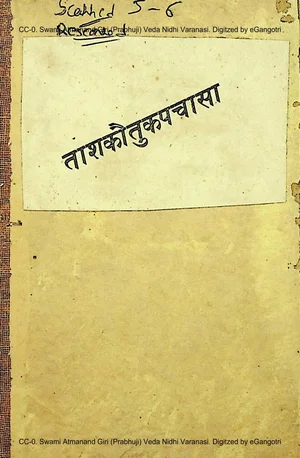 Scanned 5-6
CC-0. Swami Atmanand Giri (Prabhuji) Veda Nidhi Varanasi. Digitzed by eGangotri
ताशकौतुकपचासा
CC-0. Swami Atmanand Giri (Prabhuji) Veda Nidhi Varanasi. Digitzed by eGangotri